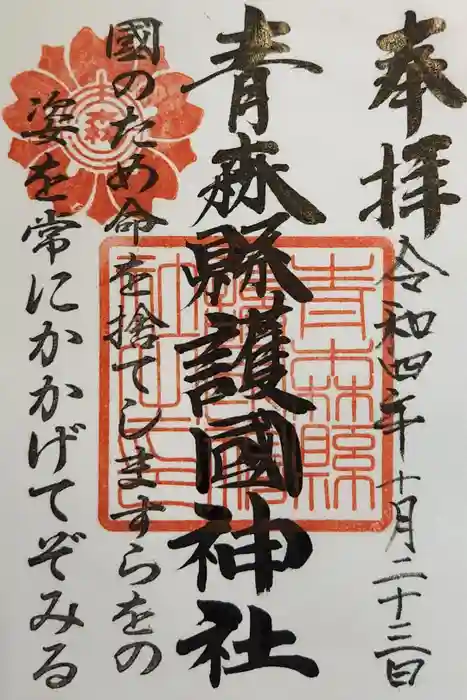 奉拝
令和四年十月二十三日
青森縣護國神社
國のため命を捨てしますらをの
姿を常にかかげてぞみる
青森縣